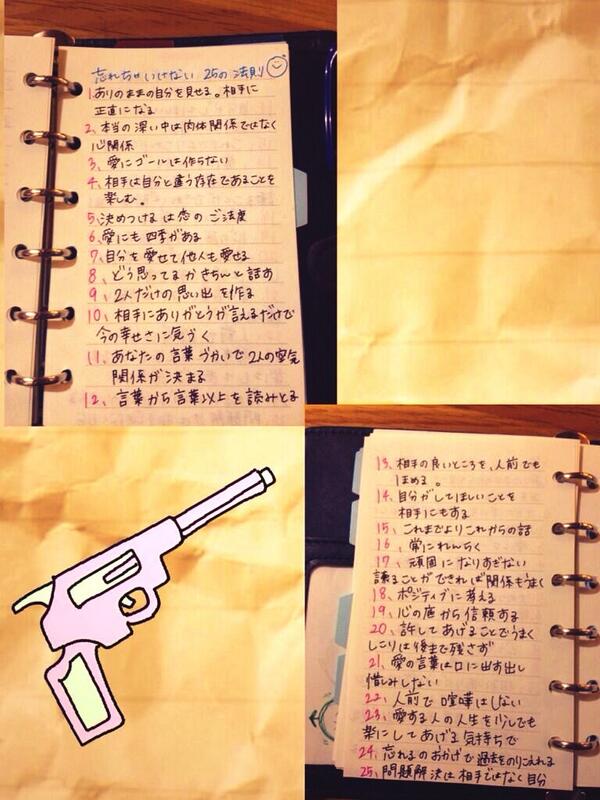 忘れちゃいけない 25の法則
1.ありのままの自分を見せる。相手に
正直になる
2、本当の深い中は肉体関係ではなく
心関係
3、愛にゴールは作らない
4、相手は自分と違う存在であることを
楽しむ。
5、決めつけるは恋のご法度
6、愛にも四季がある
7、自分を愛せて他人も愛せる
8、どう思ってるかきちんと話す
9、2人だけの思い出を作る
10、相手にありがとうが言えるだけで
今の幸せさに気づく
11、あなたの言葉づかいで2人の空気
関係が決まる
12、言葉から言葉以上を読みとる
13、相手の良いところを、人前でも
ほめる。
14、自分がしてほしいことを
相手にもする
15、これまでよりこれからの話
16、常にれんらく
17、頑固になりすぎない
譲ることができれば関係もうまく
18、ポジティブに考える
19、心の底から信頼する
20、許してあげることでうまく
しこりは後まで残さず
21、愛の言葉は口に出す出し
惜しみしない
22、人前で喧嘩はしない
23、愛する人の人生を少しでも
楽にしてあげる気持ちで
24、忘れるのおかげで過去をのりこえれる
25、問題解決は相手ではなく自分